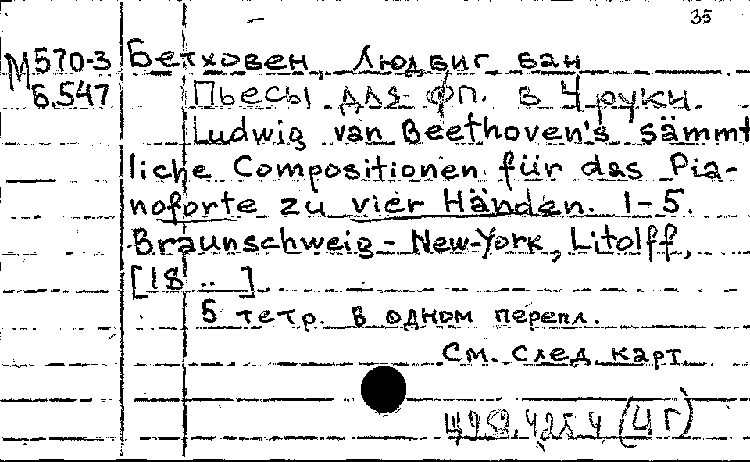 35
М570-3 Бетховен, Людвиг ван
Б.547 Пьесы для фп. в 4 руки.
Ludwig van Beethoven's sämmt
liche Compositionen für das Pia-
noforte zu vier Händen. 1-5.
Braunschweig - New-York, Litolff,
[18 ..]
5 тетр. в одном перепл.
См. след. карт.